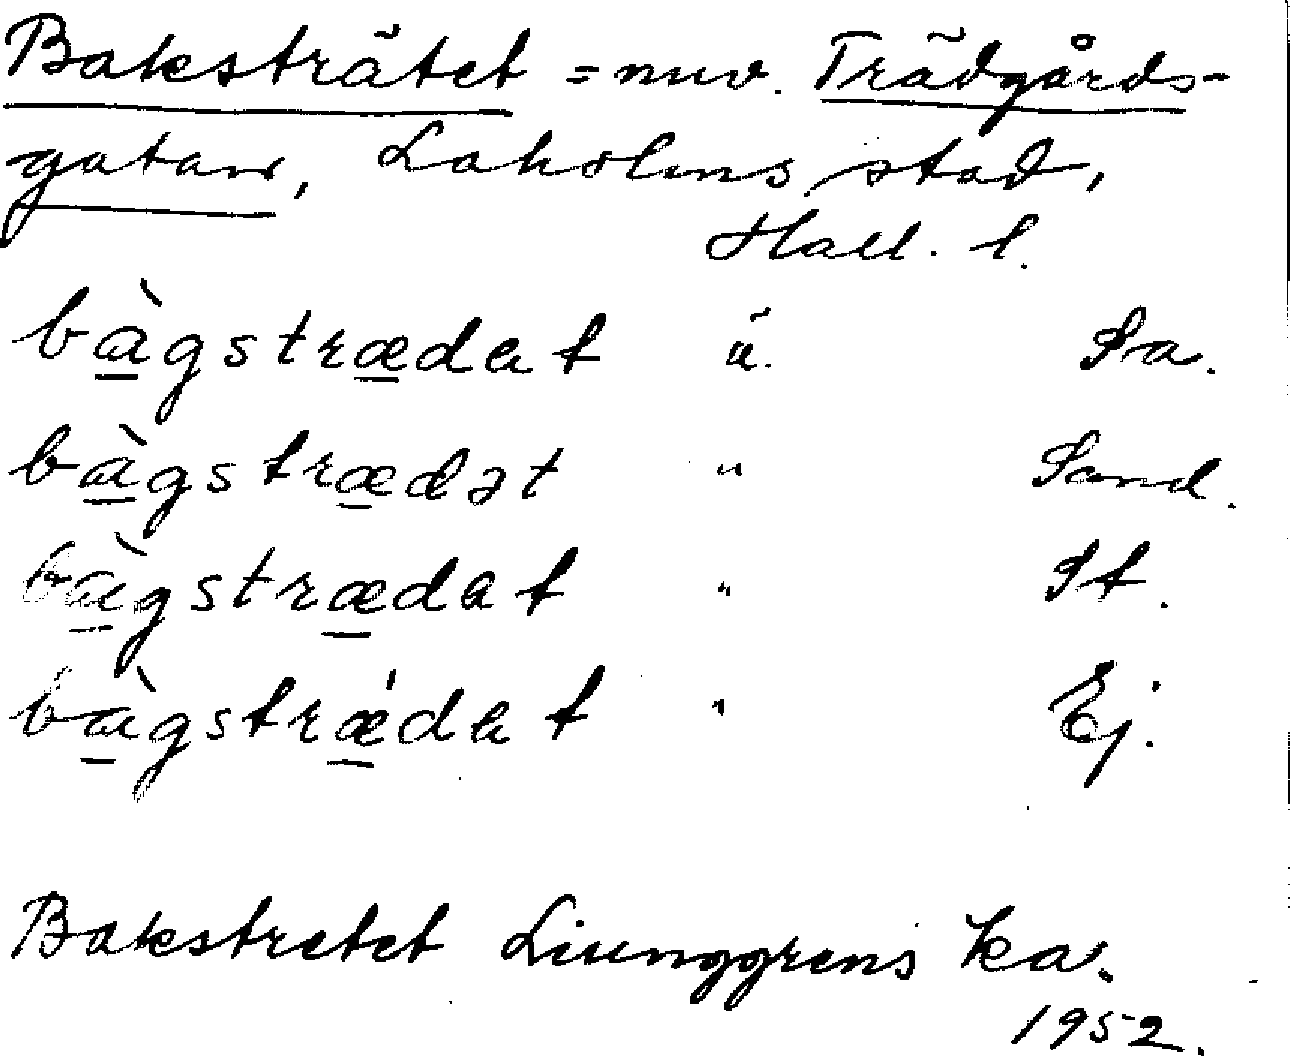 Baksträtet = nuv. Trädgårds-
gatan, Laholms stad,
Hall. l.
bàgstrædat ä. Sa.
bàgstrædət " Sand.
bàgstrædat " St.
bàgstrǽdat " Ej.
Bakstretet Liunggrens ka.
1952.